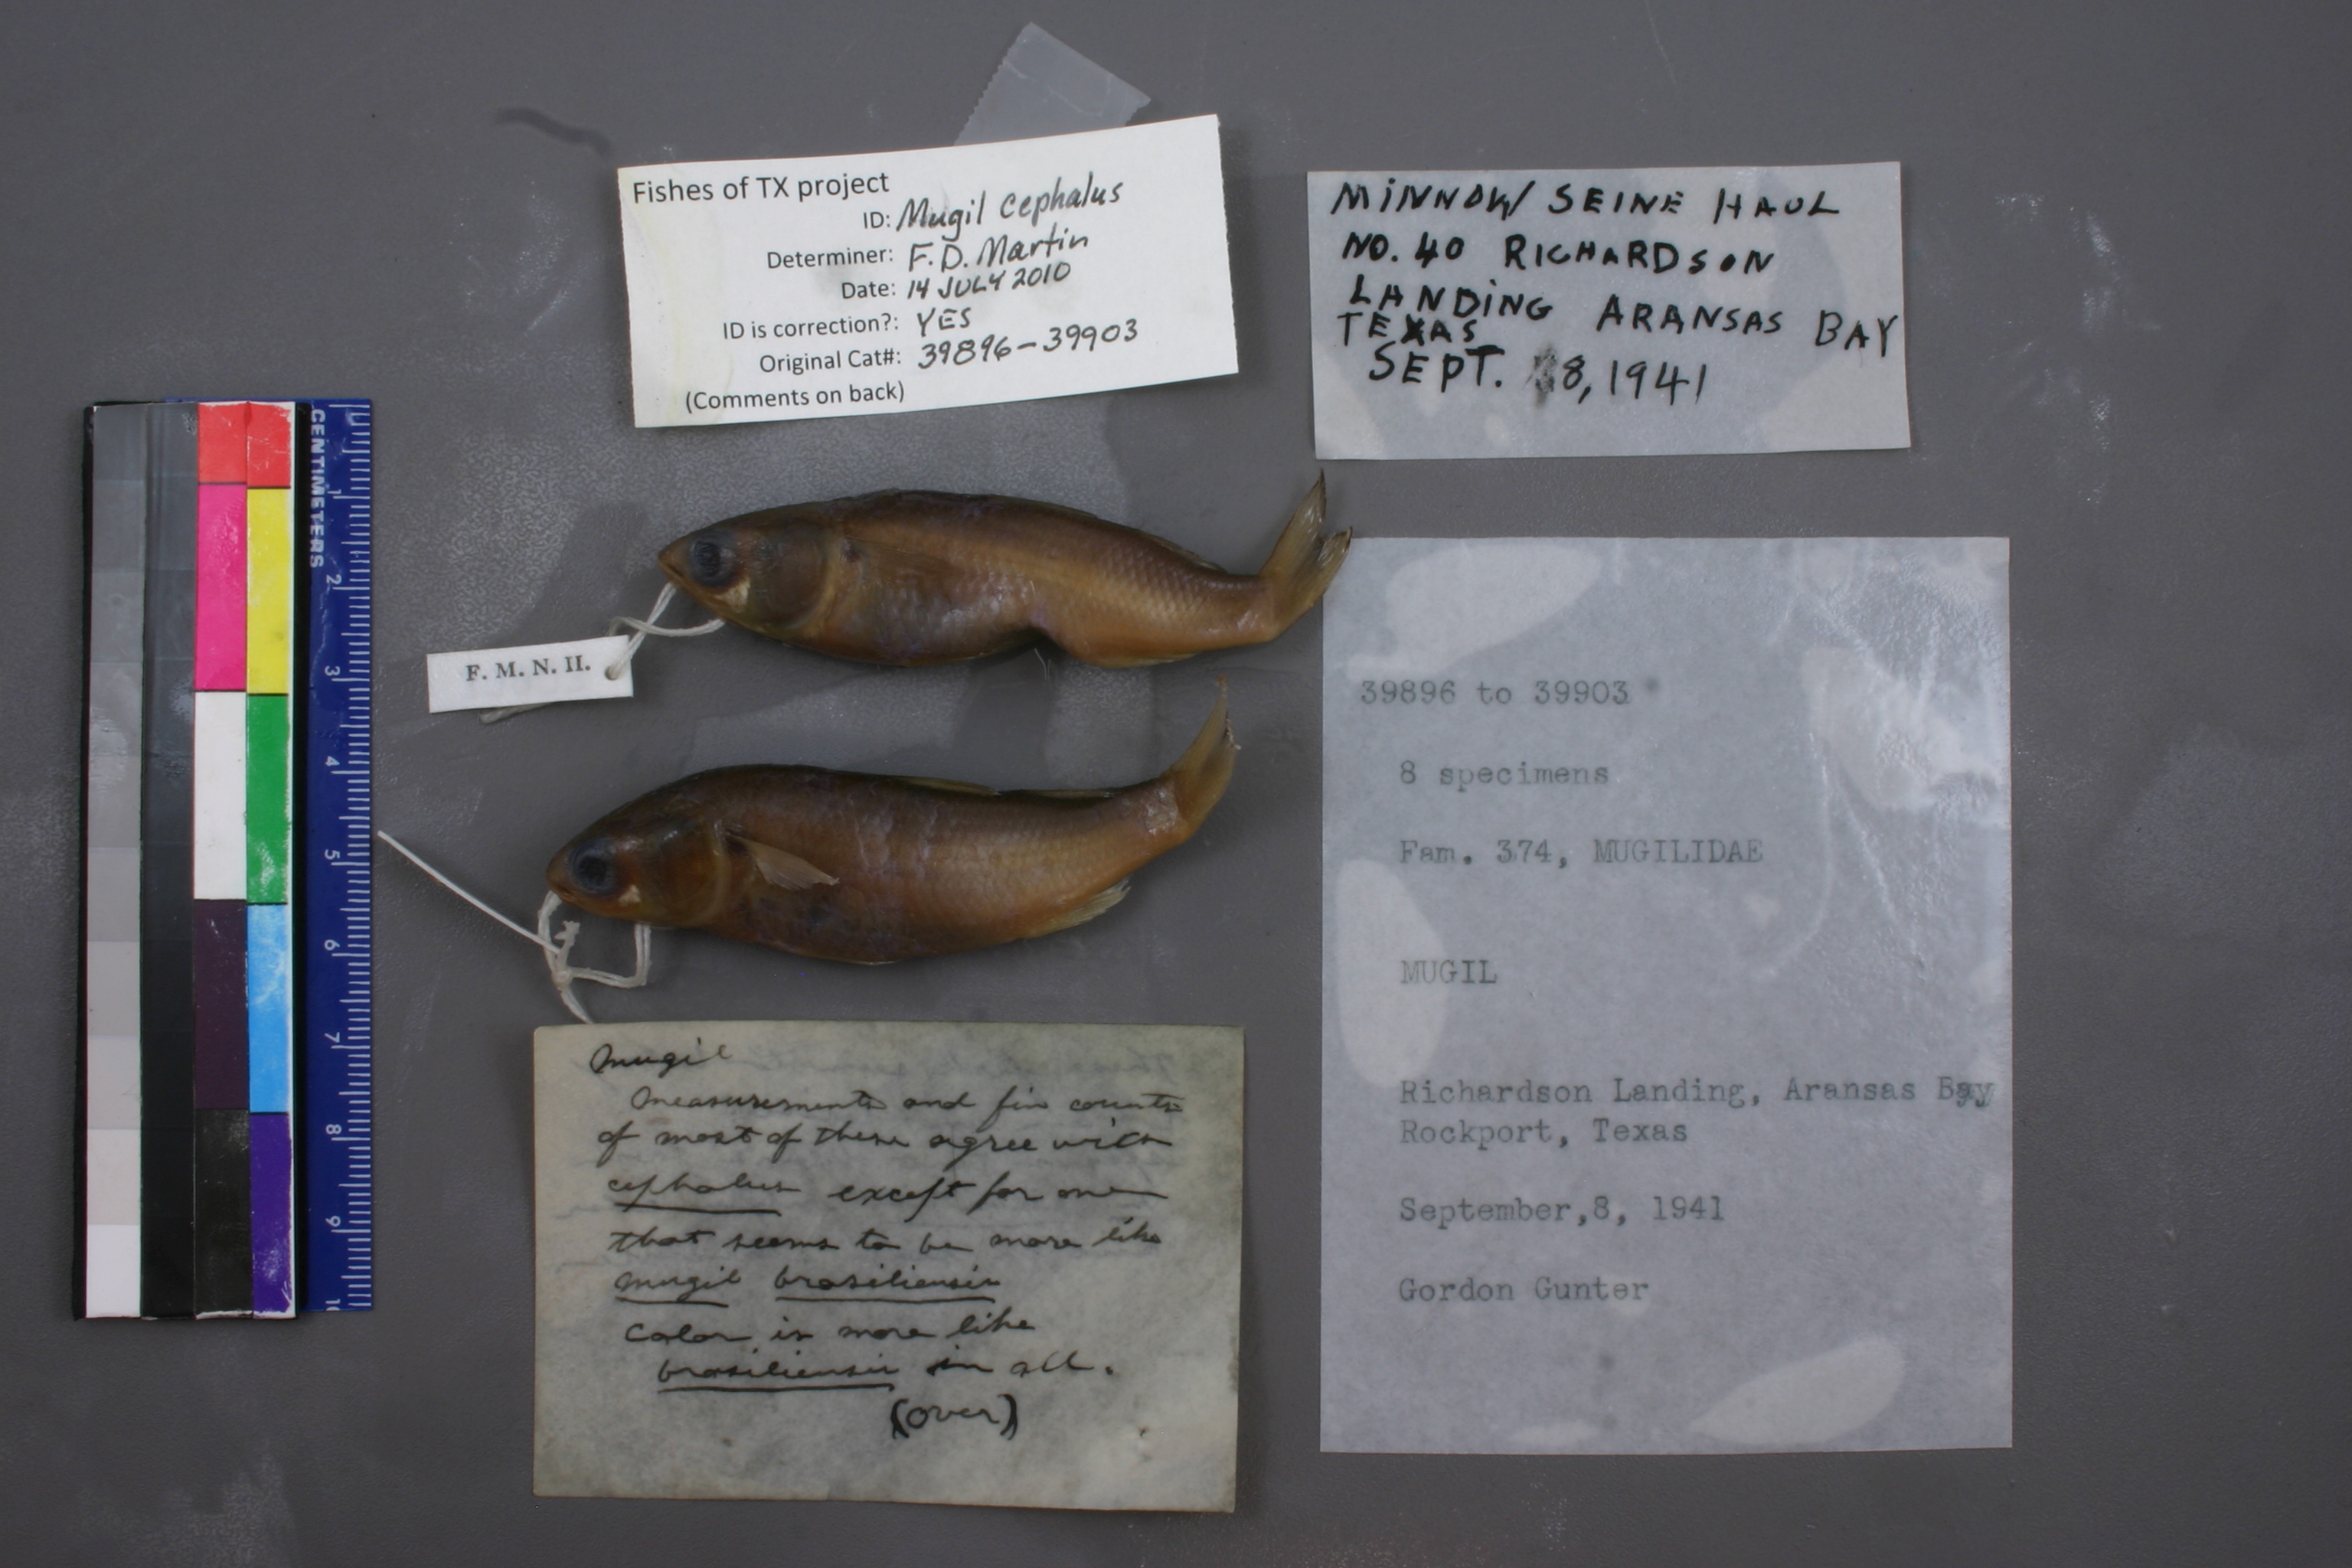 Fishes of TX project
ID: Mugil cephalus
Determiner: F.D. Martin
Date: 14 JULY 2010
ID is correction?: YES
Original Cat#: 39896-39903
(Comments on back)
MINNOW SEINE HAUL
NO. 40 RICHARDSON
LANDING ARANSAS BAY
TEXAS
SEPT. 8, 1941
CENTIMETERS
1
2
3
4
5
6
7
8
9
F. M. N. H.
39896 to 39903
8 specimens
Fam. 374, MUGILIDAE
MUGIL
Richardson Landing, Aransas Bay
Rockport, Texas
September,8, 1941
Gordon Gunter
Mugil
Measurements and fin counts
of most of these agree with
cephalus except for one
that seems to be more like
Mugil brasiliensis
Color is more like
brasiliensis in all.
(over)